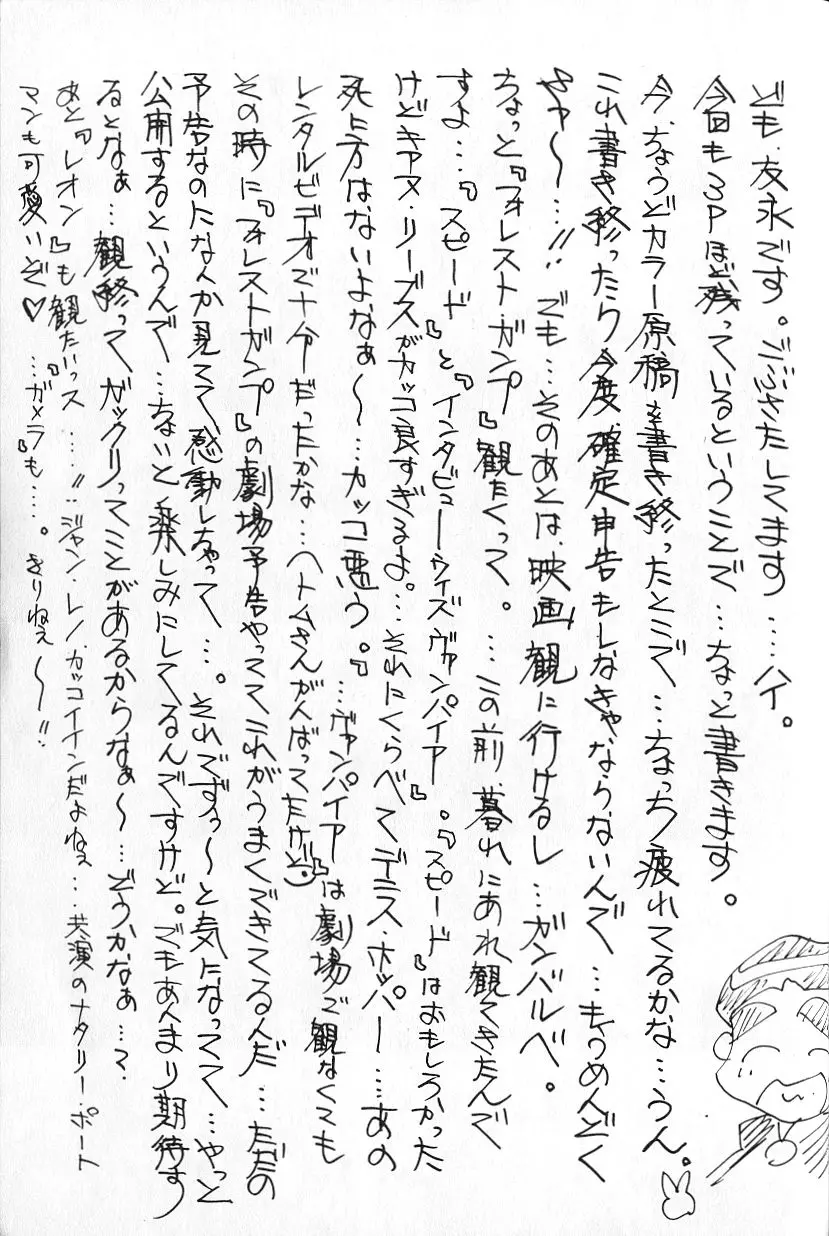 ども、友永です。ごぶさたしてます……ハイ。
今回も3Pほど残っているということで…ちょっと書きます。
今、ちょうどカラー原稿を書き終ったとこで…ちょっち疲れてるかな…うん。
これ書き終ったら今度、確定申告もしなきゃならないんで…もうめんどく
さァ〜…!! でも…そのあとは、映画観に行けるし…ガンバルベ。
ちょっと『フォレスト・ガンプ』観たくって。…この前暮れにあれ観てきたんで
すよ…『スピード』と『インタビュー・ウィズ・ヴァンパイア』。『スピード』はおもしろかった
けどキアヌ・リーブスがカッコ良すぎるよ。…それにくらべてデニス・ホッパー……あの
死に方はないよなぁ〜…カッコ悪う。』…ヴァンパイア』は劇場で観なくても
レンタルビデオで十分だったかな…ヘトムさんがんばってたけど
その時に『フォレストガンプ』の劇場予告やっててこれがうまくできてるんだ…ただの
予告なのになんか見てて感動しちゃって…。それでずぅ〜と気になってて…やっと
公開するというんで…ちょいと楽しみにしてるんですけど。でもあんまり期待す
るとなぁ…観終ってガックリってことがあるからなぁ〜…どうかなぁ…て、
あと『レオン』も観たいっス……!!ジャン・レノ、カッコイインだよねぇ…共演のナタリー・ポート
マンも可愛いぞ♡…『ガメラ』も……。きりねぇ〜!!